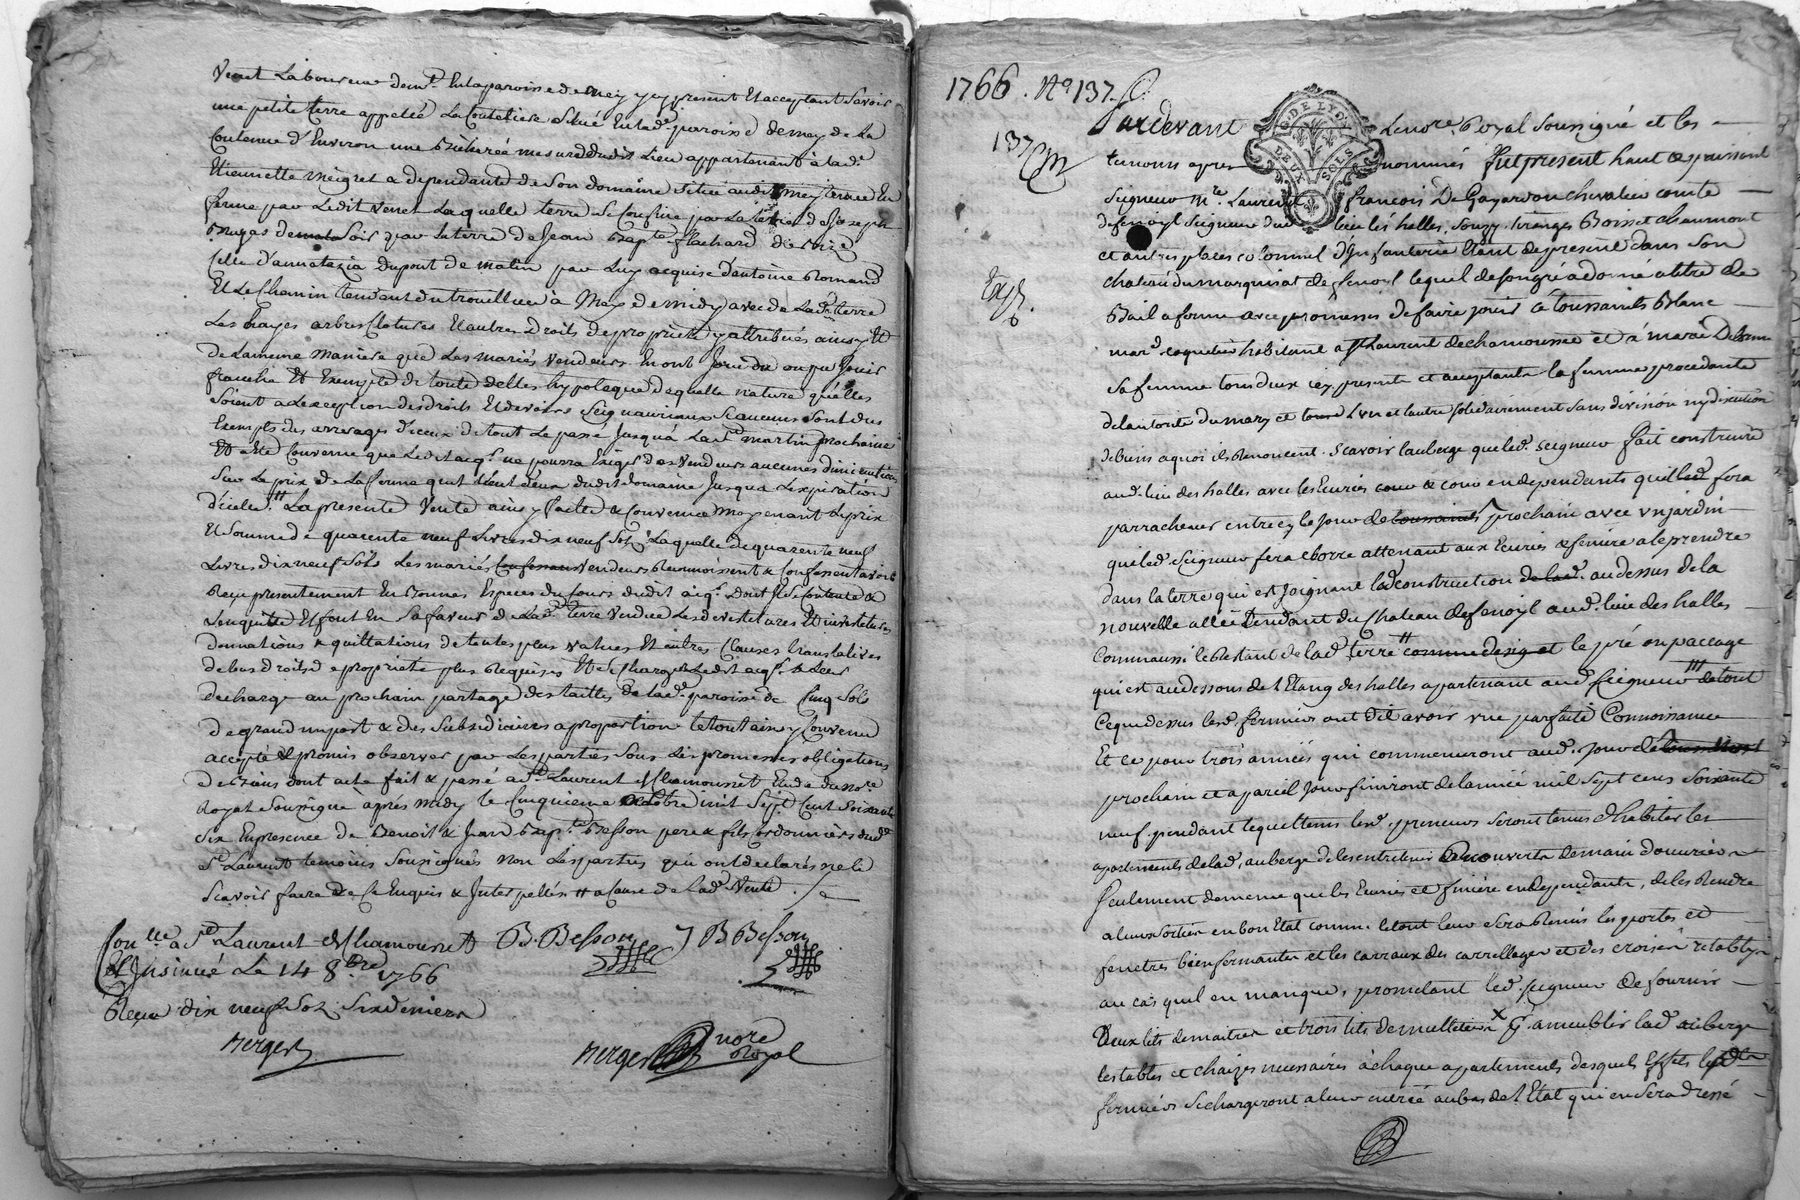 venet Laboureur demt. En la paroisse de mey y cy present Et acceptant Savoir
une petite terre appellée La Couteliere située En lade. paroisse de mey de La
Contenue d'Environ une Bicherée mesure dudit Lieu appartenant à lade.
thiennette meigret & dependante de Son domaine situé audit mey tenue En
ferme par Ledit venet Laquelle terre Se Confine par La terre de Joseph
Brugas de Soir par la terre de Jean Bapte. flachard de Bize
Celle d'annatazia Dupont de matin par Luy acquise d'antoine Romand
Et Le Chemin tendant du trouilliere à Mey de midy avec de Lade. terre
Les hayes arbres Clotures Et autres Droits de propriété y attribués ainsy Et
de La meme maniere que Les mariés vendeurs En ont Joui du ou pu Jouir
franche Et Exempte de toute debtes hypoteque de quelle nature qu'elles
Soient a Lexception des droits Et devoirs Seigneuriaux Si aucuns Sont dus
Exempts des arrerages d'iceux de tout Le passé Jusqu'a La St. martin prochaine
Et a Eté Convenu que Ledit acqr. ne pourra Exiger des Vendeurs aucunes diminutions
Sur Le prix de La ferme qu'il tient d'eux dudit domaine Jusqua Lexpiration
d'icelle. La presente Vente ainsy faite & Convenue moyenant Le prix
Et Somme de quarente neuf Livres dix neuf Sols Laquelle de quarente neuf
Livres dix neuf Sols Les mariés Confessans Vendeurs Reconnoissent & Confessent avoir
Reçu presentement En Bonnes Especes du Cours dudit acqr. Dont Ils Se Contente &
Lenquitte Et font En Sa faveur de Lade. terre Vendue Les devestitures Et investitures
donnations & quittations de toutes plus values Et autres Clauses translatives
de tous droits de propriété plus Requises Et Se Chargera Ledit acqr. & Leur
decharge au prochain partage des tailles de lade. paroisse de Cinq Sols
de grand import & des Subsidiaires a proportion Le tout ainsy Convenu
accepté & promis observer par Les parties Sous Les promesses obligations
de Biens dont acte fait & passé a St. Laurent de Chamousset Etude du nore.
Royal Soussigné après midy le Cinquieme octobre mil Sept Cent Soixante
Six En presence de Benoit & Jean Bapte. Besson pere & fils Cordonniers aud.
St. Laurent temoins Soussignés non Les parties qui ont declarés ne le
Scavoir faire de Ce Enquis & Interpellés # a Cause de Lade. Vente ./.
Conlle. à St. Laurent de Chamousset B. Besson J B Besson
Et Insinué Le 14 8bre 1766
Reçu dix neuf Sols Six deniers
Berger Berger nore
Royal
1766. No 137.
Pardevant Le nore. Royal Soussigné et les
137
G. DE LYON
DEUX SOLS
temoins apres nommés fut present haut & puissant
Seigneur Mre. Laurent francois De Gayardon chevalier comte
de fenoyl Seigneur du lieu les halles, Souzy, viranges Boisset chaumont
et autres places colonnel d'Infanterie Etant de present dans Son
chateau du marquisat de fenoyl lequel de Son gré a donné a titre de
Expé.
Bail a ferme avec promesses de faire jouir à toussaints Blanc
mard. coquetier habitant a St Laurent de chamousset et à marie
Sa femme tous deux icy presents et acceptants la femme procedante
de lautorité du mary et tous Lun et lautre solidairement sans division ny discution
de biens a quoi ils Renoncent. Scavoir lauberge que led. Seigneur fait construire
aud. lieu des halles avec les Ecuries cour & en dependants quil led. fera
parrachever entre cy le Jour de toussaints prochain avec un jardin
que led. Seigneur fera clorre attenant aux Ecuries & feniere a le prendre
dans la terre qui est Joignant lad. construction de lad. au dessus de la
nouvelle allée tendant du Chateau de fenoyl aud. lieu des halles
Comm aussi le Restant de lad. terre # comme desig et le pré ou paccage
qui est au dessous de l'Etang des halles apartenant aud. Seigneur # de tout
Ce que dessus lesd. fermiers ont dit avoir vue parfaite Connoissance
Et ce pour trois années qui commenceront aud. jour de toussaint
prochain et a pareil jour finiront de lannée mil Sept cens Soixante
neuf. pendant lequel tems lesd. preneurs seront tenus d'habiter les
apartements de lad. auberge de les entretenir Recouverts de main d'ouvrier
Seulement de meme que les Ecuries et feniere en dependants, de les Rendre
a leur sortie en bon Etat comme le tout leur Sera Remis les portes et
fenetres bien fermantes et les carraux des carrellages et des croisées retablis
au cas quil en manque, promettant led. Seigneur de fournir
Deux lits de maitres et trois lits de mulletiers x & ameubler lad. auberge
les tables et chaizes necessaires à chaque apartements desquels Effets lesd.
fermiers se chargeront a leur entrée au bas de l'Etat qui en sera dressé